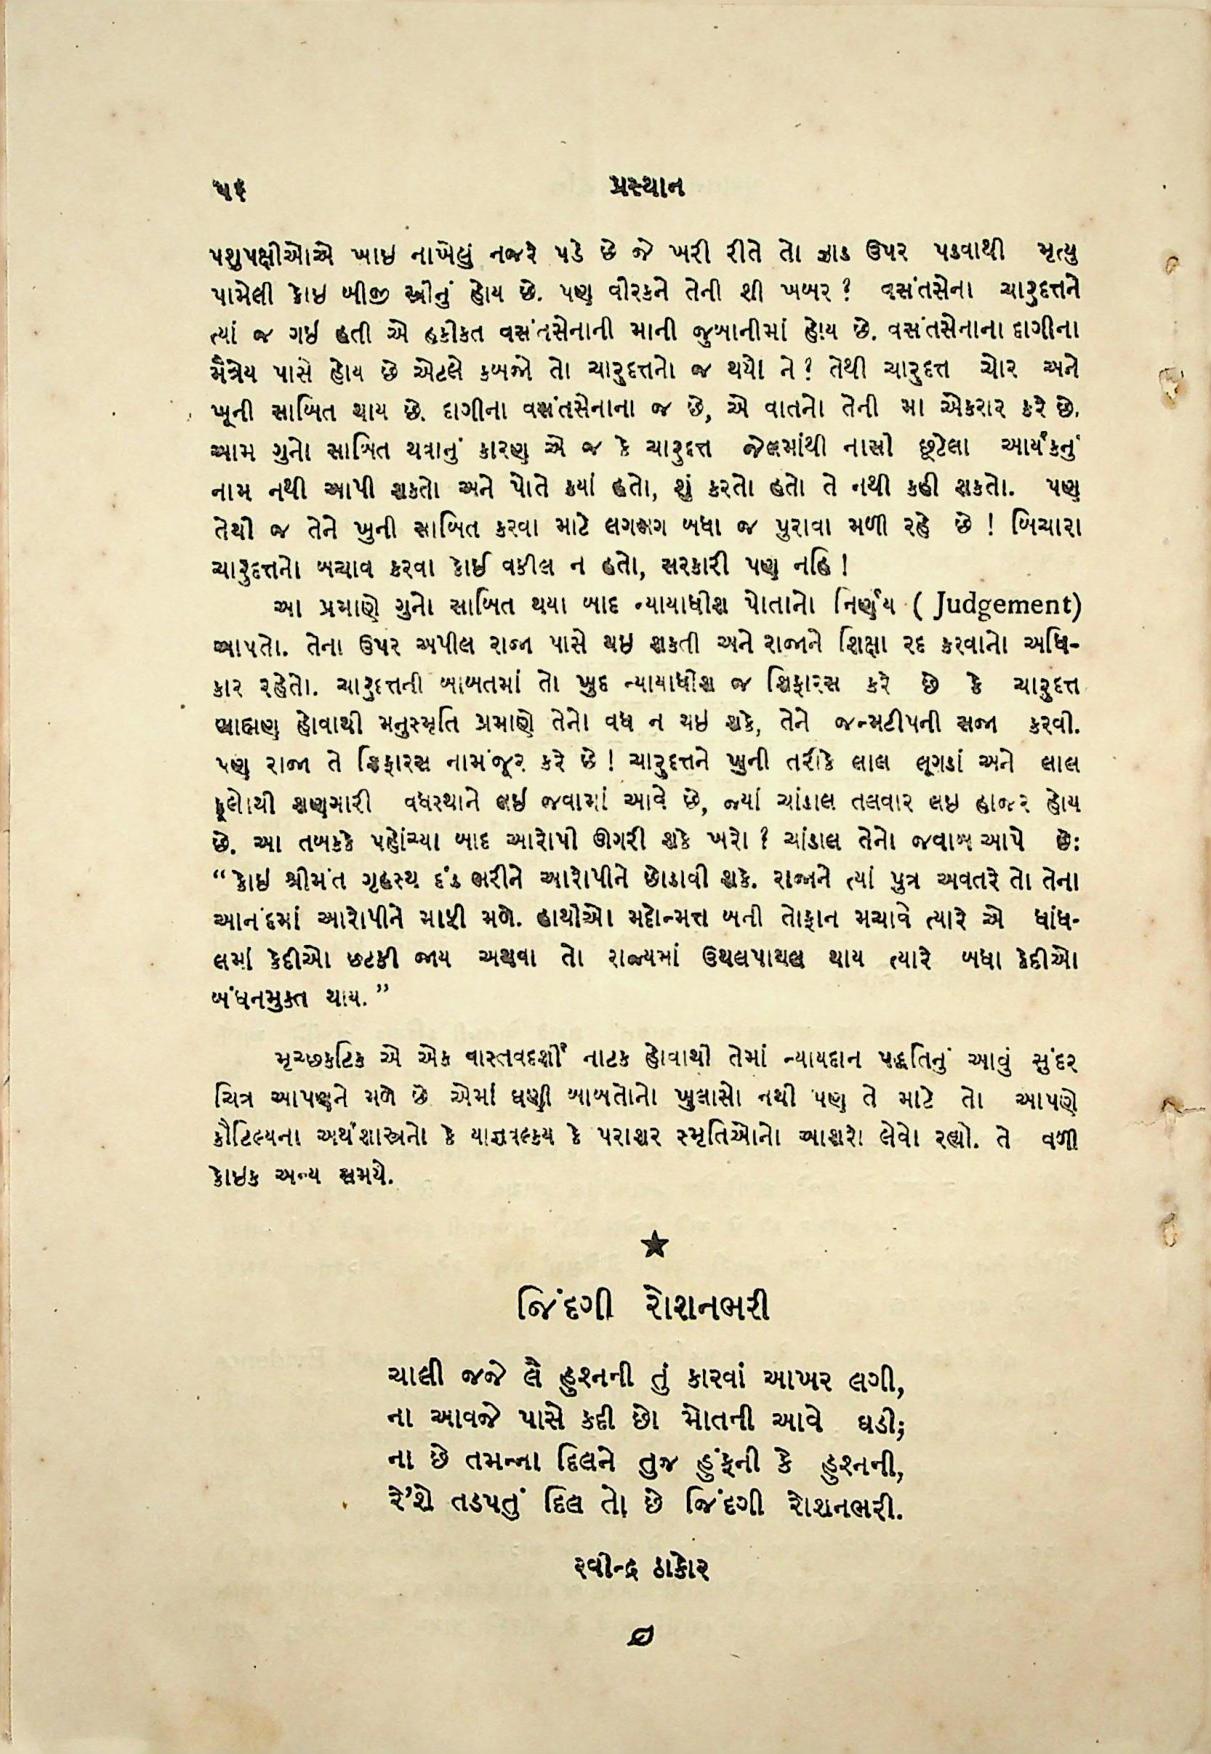 ૫૬ પ્રસ્થાન
પશુપક્ષીઓએ ખાઇ નાખેલું નજરે પડે છે જે ખરી રીતે તો ઝાડ ઉપર પડવાથી મૃત્યુ
પામેલી કોઇ બીજી સ્ત્રીનું હોય છે. પણ વીરકને તેની શી ખબર? વસંતસેના ચારુદત્તને
ત્યાં જ ગઇ હતી એ હકીકત વસંતસેનાની માની જુબાનીમાં હોય છે. વસંતસેનાના દાગીના
મૈત્રેય પાસે હોય છે એટલે કબજો તો ચારુદત્તનો જ થયો ને? તેથી ચારુદત્ત ચોર અને
ખૂની સાબિત થાય છે. દાગીના વસંતસેનાના જ છે, એ વાતનો તેની મા એકરાર કરે છે.
આમ ગુનો સાબિત થવાનું કારણ એ જ કે ચારુદત્ત જેલમાંથી નાસી છૂટેલા આર્યકનું
નામ નથી આપી શકતો અને પોતે ક્યાં હતો, શું કરતો હતો તે નથી કહી શકતો. પણ
તેથી જ તેને ખુની સાબિત કરવા માટે લગભગ બધા જ પુરાવા મળી રહે છે! બિચારા
ચારુદત્તનો બચાવ કરવા કોઈ વકીલ ન હતો, સરકારી પણ નહિ!
આ પ્રમાણે ગુનો સાબિત થયા બાદ ન્યાયાધીશ પોતાનો નિર્ણય (Judgement)
આપતો. તેના ઉપર અપીલ રાજા પાસે થઇ શકતી અને રાજાને શિક્ષા રદ કરવાનો અધિ-
કાર રહેતો. ચારુદત્તની બાબતમાં તો ખુદ ન્યાયાધીશ જ શિફારસ કરે છે કે ચારુદત્ત
બ્રાહ્મણ હોવાથી મનુસ્મૃતિ પ્રમાણે તેનો વધ ન થઇ શકે, તેને જન્મટીપની સજા કરવી.
પણ રાજા તે શિફારસ નામંજૂર કરે છે! ચારુદત્તને ખુની તરીકે લાલ લૂગડાં અને લાલ
ફૂલોથી શણગારી વધસ્થાને લઇ જવામાં આવે છે, જ્યાં ચાંડાલ તલવાર લઇ હાજર હોય
છે. આ તબક્કે પહોંચ્યા બાદ આરોપી ઊગરી શકે ખરો? ચાંડાલ તેનો જવાબ આપે છે:
“કોઇ શ્રીમંત ગૃહસ્થ દંડ ભરીને આરોપીને છોડાવી શકે. રાજાને ત્યાં પુત્ર અવતરે તો તેના
આનંદમાં આરોપીને માફી મળે. હાથીઓ મદોન્મત્ત બની તોફાન મચાવે ત્યારે એ ધાંધ-
લમાં કેદીઓ છટકી જાય અથવા તો રાજ્યમાં ઉથલપાથલ થાય ત્યારે બધા કેદીઓ
બંધનમુક્ત થાય.”
મૃચ્છકટિક એ એક વાસ્તવદર્શી નાટક હોવાથી તેમાં ન્યાયદાન પદ્ધતિનું આવું સુંદર
ચિત્ર આપણને મળે છે એમાં ઘણી બાબતોનો ખુલાસો નથી પણ તે માટે તો આપણે
કૌટિલ્યના અર્થશાસ્ત્રનો કે યાજ્ઞવલ્ક્ય કે પરાશર સ્મૃતિઓનો આશરો લેવો રહ્યો. તે વળી
કોઇક અન્ય સમયે.
જિંદગી રોશનભરી
ચાલી જજે લૈ હુશ્નની તું કારવાં આખર લગી,
ના આવજે પાસે કદી છો મોતની આવે ઘડી;
ના છે તમન્ના દિલને તુજ હુંફની કે હુશ્નની,
રે'શે તડપતું દિલ તો છે જિંદગી રોશનભરી.
રવીન્દ્ર ઠાકોર